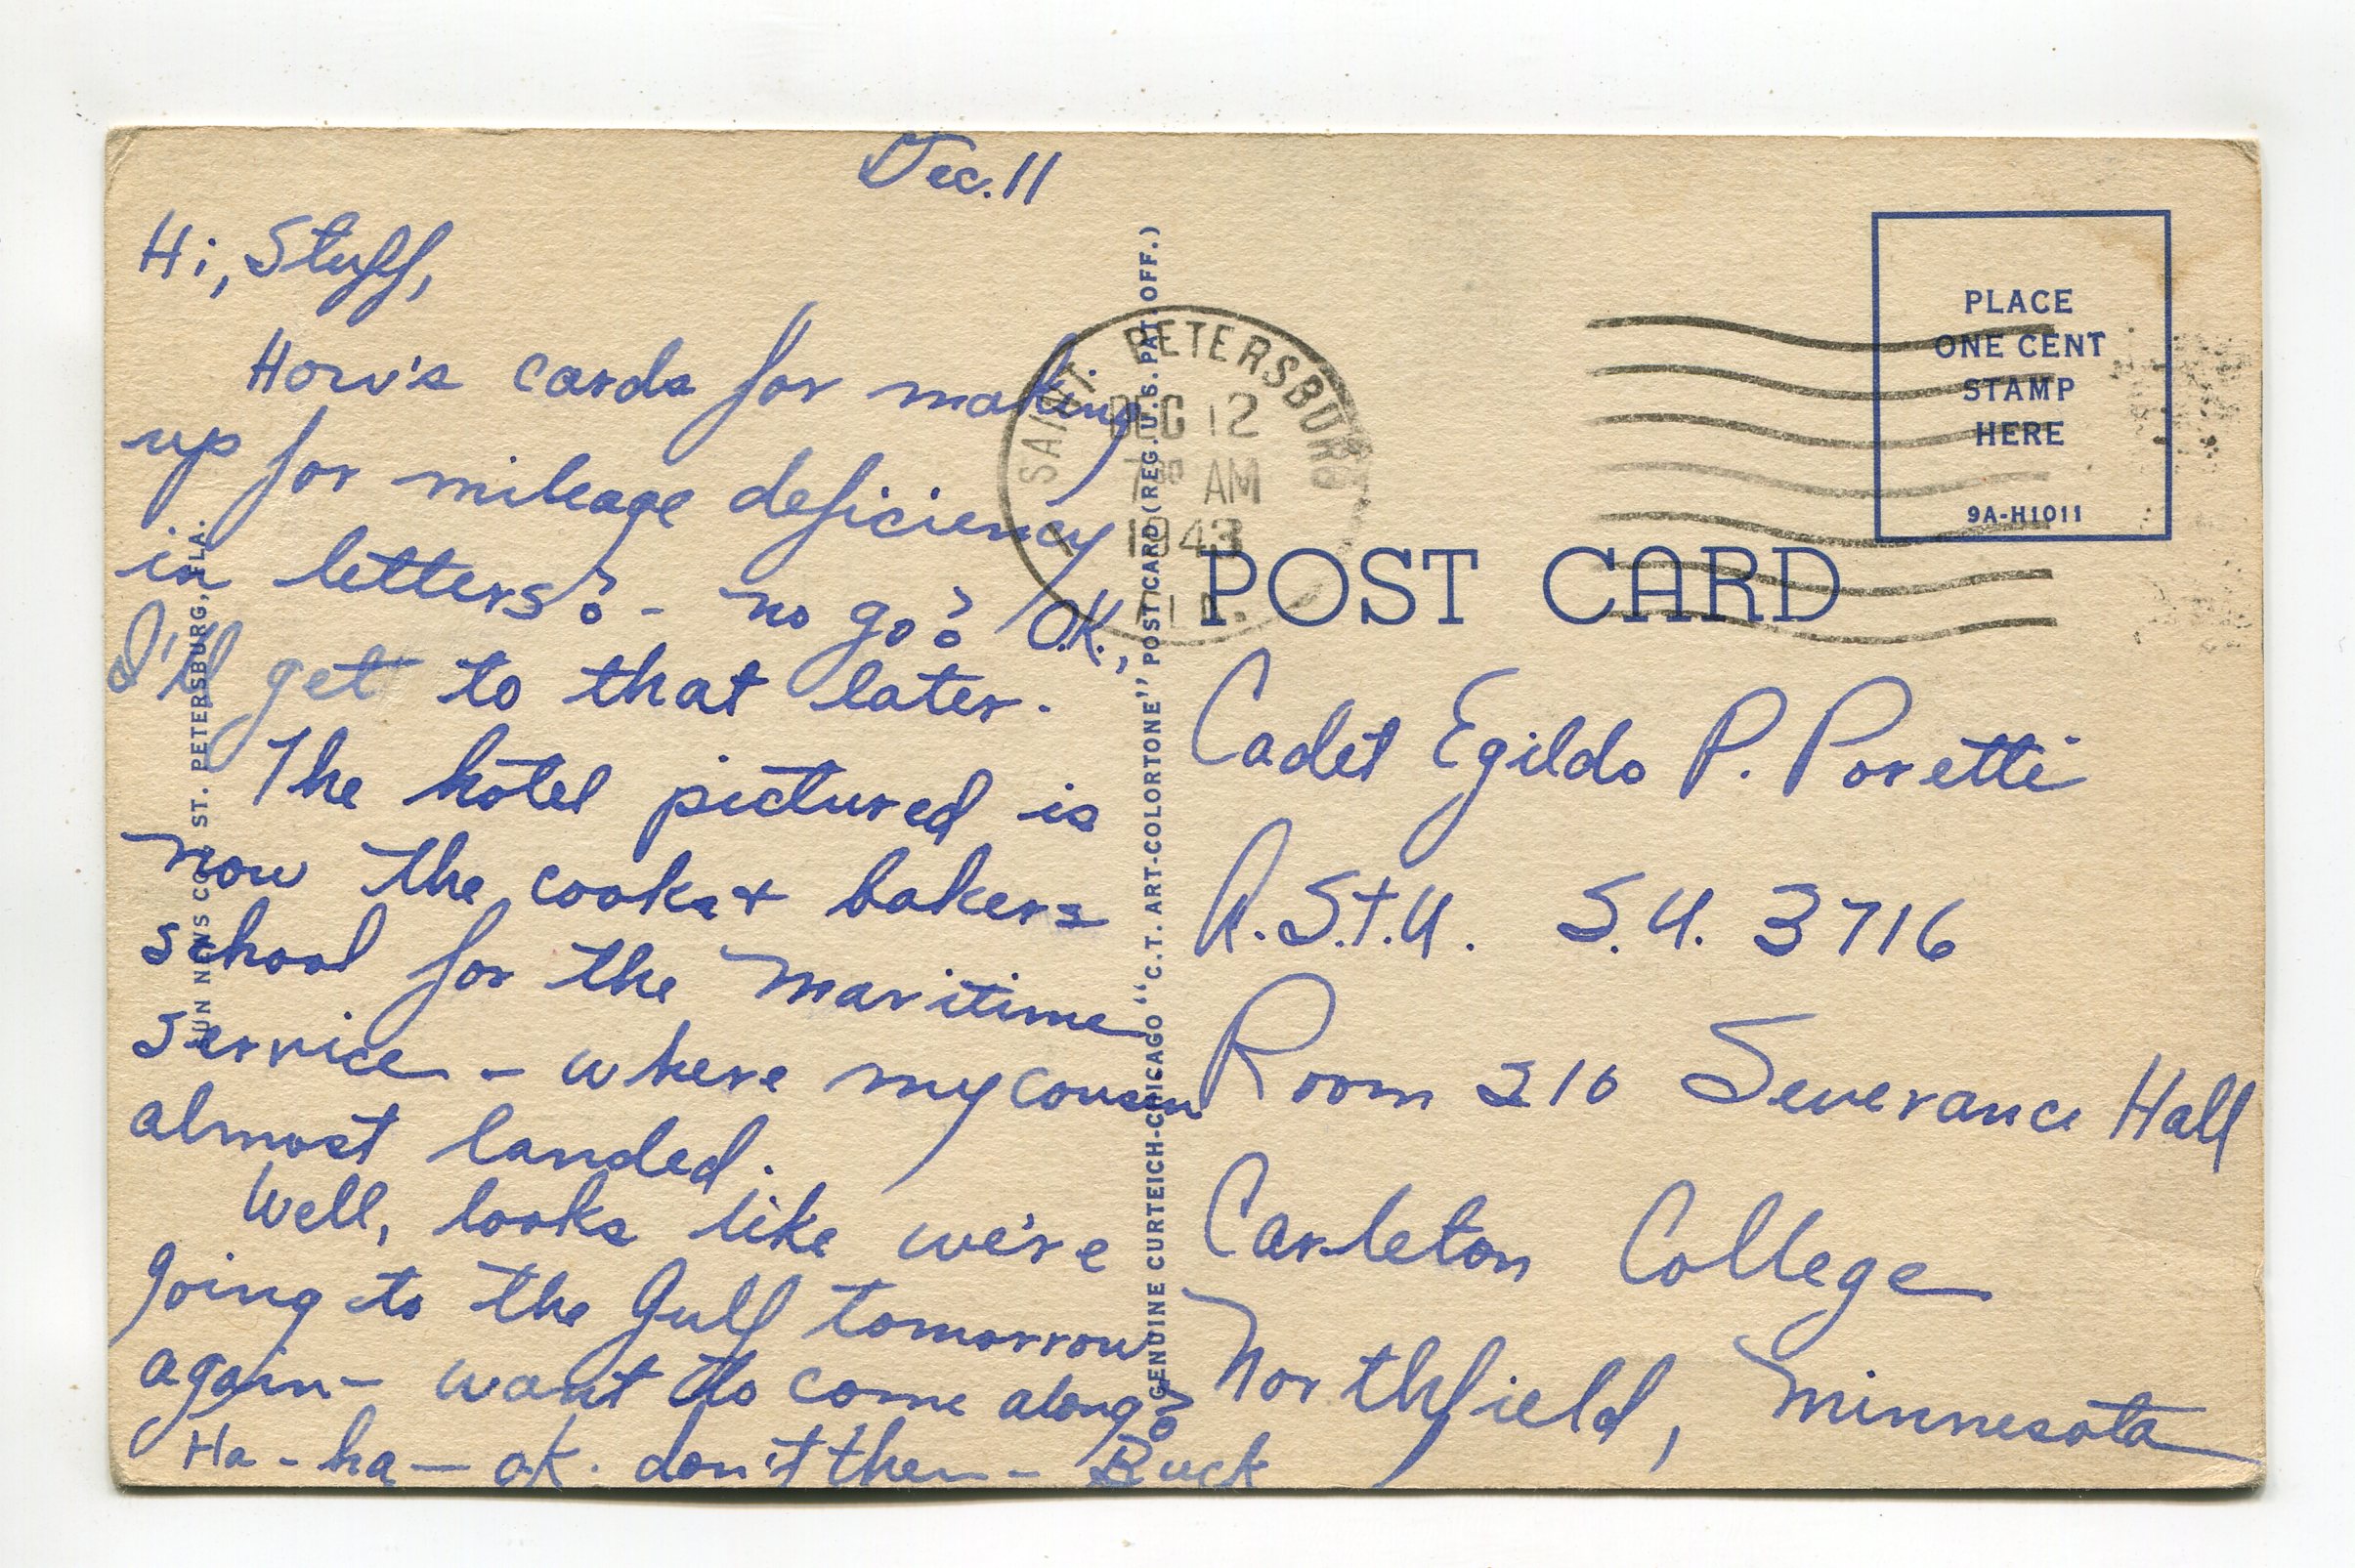 Dec. 11
Hi, Stuff,
How's cards for making
up for mileage deficiency
in letters? - no go? O.K.,
I'll get to that later.
The hotel pictured is
now the cooks + bakers
school for the maritime
service - where my cousin
almost landed.
Well, looks like we're
going to the Gulf tomorrow
again - want to come along?
Ha - ha - ok. don't then - Buck
SUN NEWS CO., ST. PETERSBURG, FLA.
GENUINE CURTEICH-CHICAGO "C.T. ART-COLORTONE" POST CARD (REG. U.S. PAT. OFF.)
SAINT PETERSBURG
DEC 12
7 00 AM
1943
FLA.
PLACE
ONE CENT
STAMP
HERE
9A-H1011
POST CARD
Cadet Egildo P. Poretti
A.S.T.U. S.U. 3716
Room 210 Severance Hall
Carleton College
Northfield, Minnesota